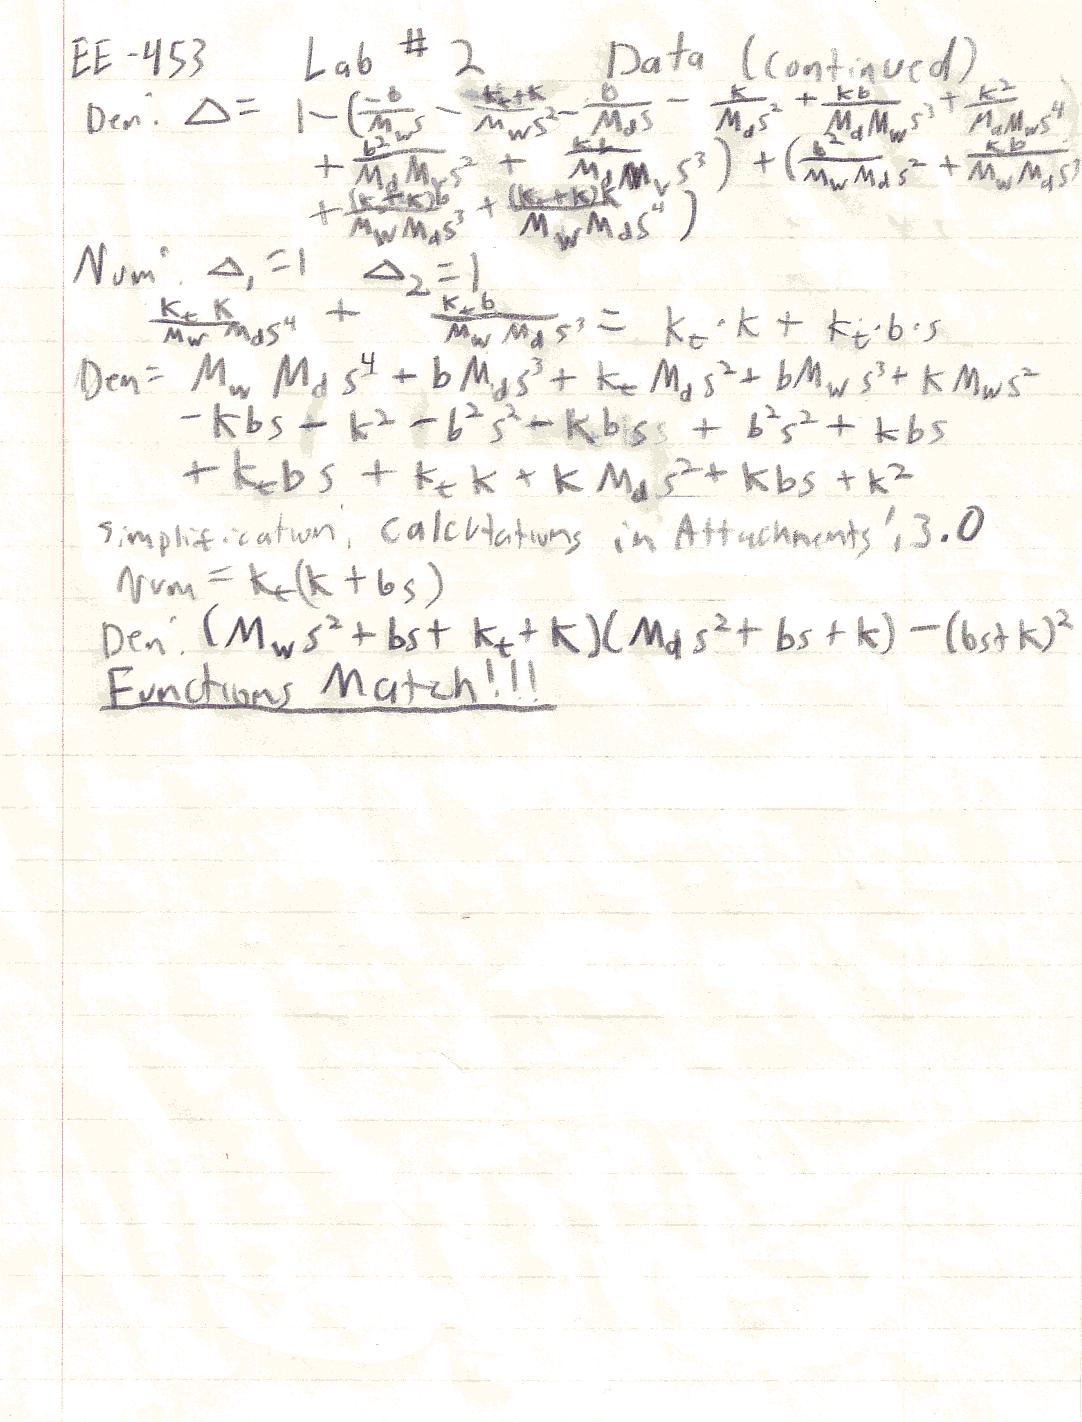 EE-453 Lab # 2 Data (Continued)
Den: Δ = 1-(-b/(M_w s) - (k_t+k)/(M_w s²) - b/(M_d s) - k/(M_d s²) + kb/(M_d M_w s³) + k²/(M_d M_w s⁴)
+ b²/(M_d M_w s²) + kb/(M_d M_w s³)) + (b²/(M_w M_d s²) + kb/(M_w M_d s³)
+ (k_t+k)b/(M_w M_d s³) + (k_t+k)k/(M_w M_d s⁴))
Num: Δ₁=1 Δ₂=1
k_t k/(M_w M_d s⁴) + k_t b/(M_w M_d s³) = k_t·k + k_t·b·s
Den = M_w M_d s⁴ + b M_d s³ + k_t M_d s² + b M_w s³ + k M_w s²
- kbs - k² - b²s² - kbs + b²s² + kbs
+ k_t b s + k_t k + k M_d s² + kbs + k²
simplification; calculations in Attachments; 3.0
Num = k_t(k + bs)
Den: (M_w s² + bs + k_t + k)(M_d s² + bs + k) - (bs+k)²
Functions Match!!!